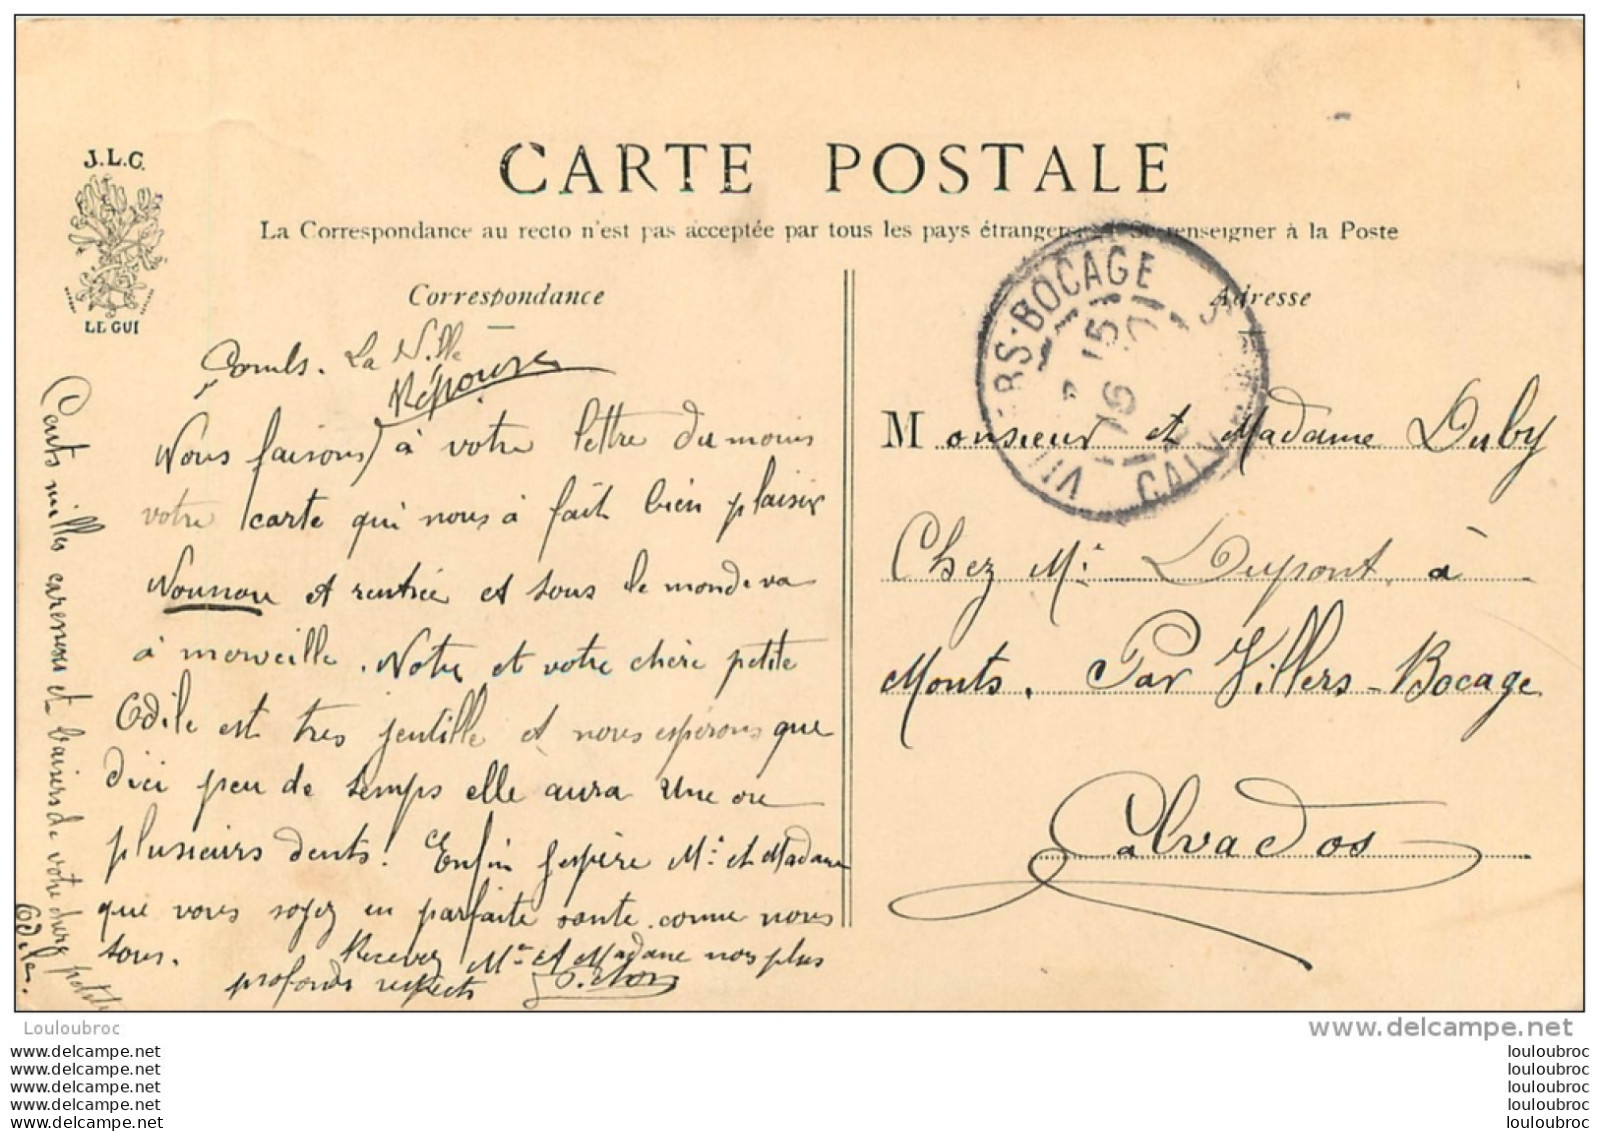 J.L.C.
LE GUI
CARTE POSTALE
La Correspondance au recto n'est pas acceptée par tous les pays étrangers Se renseigner à la Poste
Correspondance
Adresse
La Ville
Réponse
Nous faisons à votre lettre du moins
votre carte qui nous à fait bien plaisir
Nounou et rentrée et tous le monde va
à merveille. Notre et votre chère petite
Odile est tres jentille et nous espérons que
dici peu de temps elle aura une ou
plusieurs dents! Enfin jespère Mr et Madame
que vous soyez en parfaite sante comme nous
tous. Recevez Mr et Madame nos plus
profonds respects
Cents milles caresses et baisers de votre chere petite
Odile.
VILLERS-BOCAGE
CALVADOS
15
16
Monsieur et Madame Duby
Chez Mr Dupont à
Monts. Par Villers-Bocage
Calvados
Louloubroc
www.delcampe.net
www.delcampe.net
www.delcampe.net
www.delcampe.net
www.delcampe.net
www.delcampe.net
louloubroc
louloubroc
louloubroc
louloubroc
louloubroc